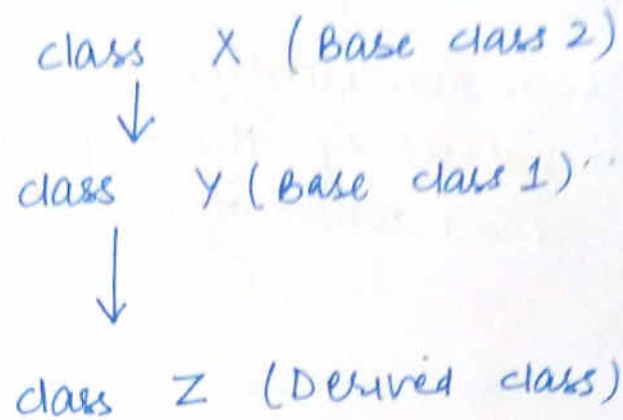 class X (Base class 2)
class Y (Base class 1)
class Z (Derived class)